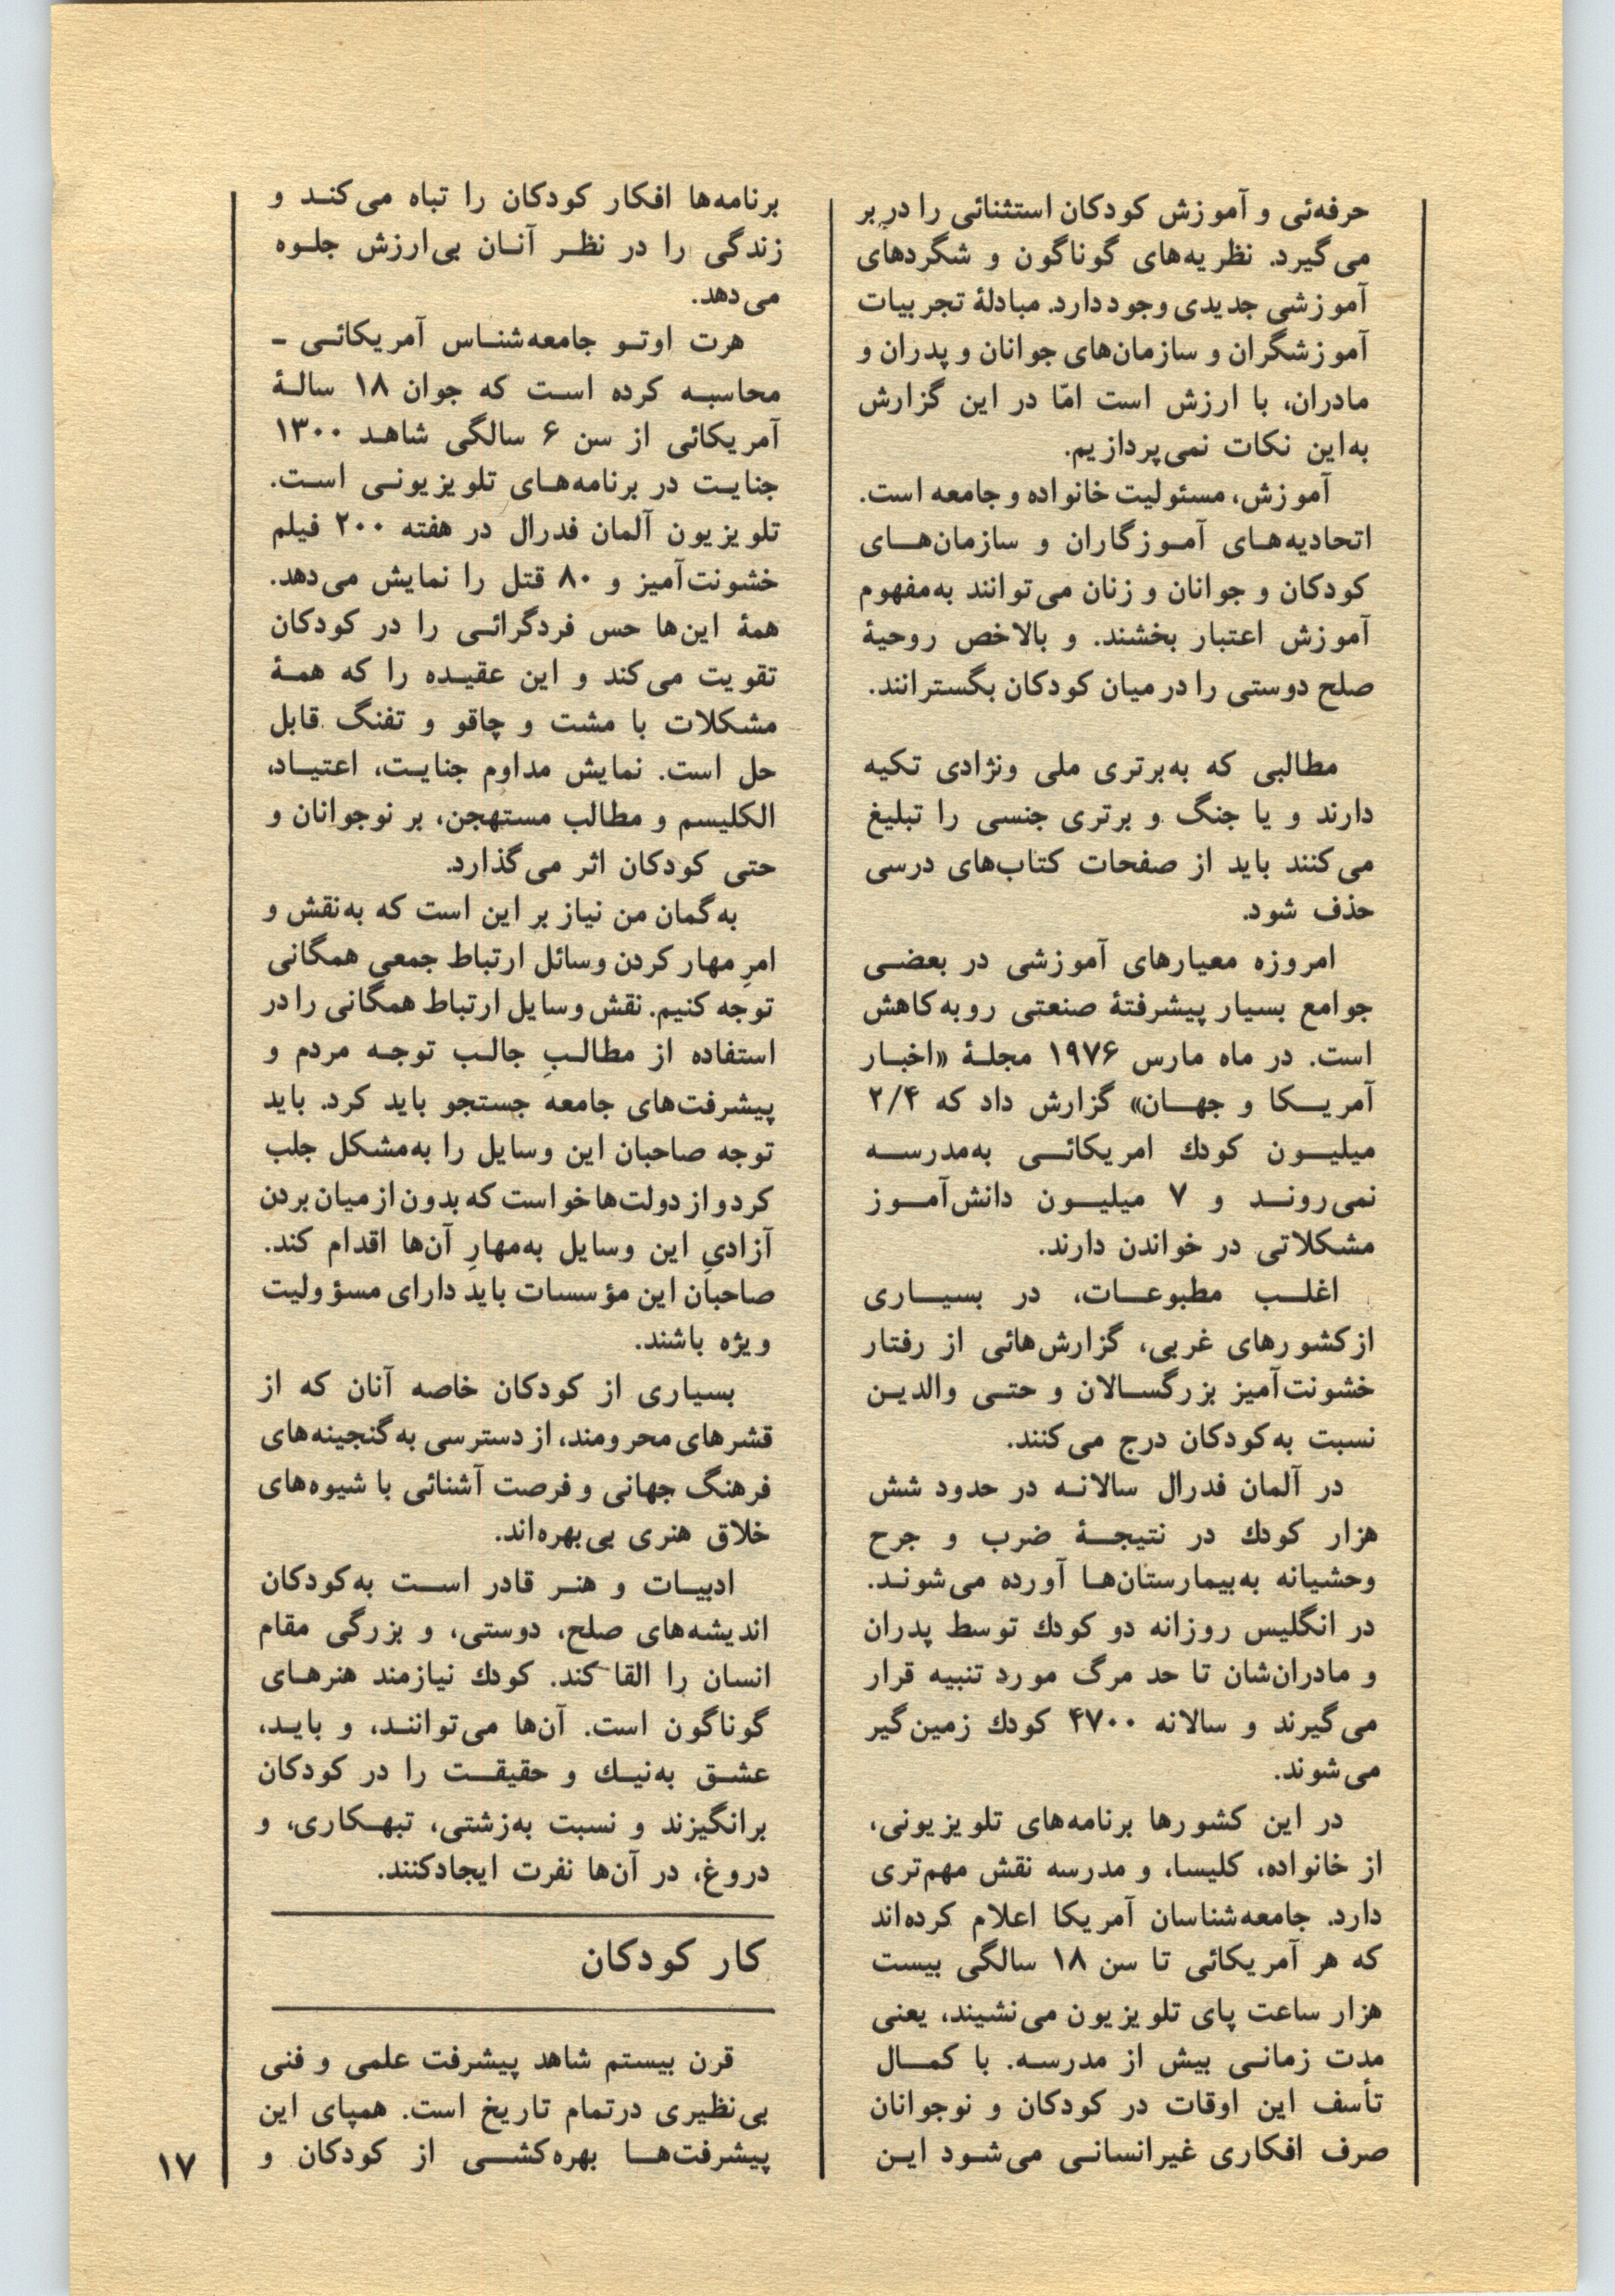 حرفه‌ئی و آموزش کودکان استثنائی را در بر
می‌گیرد. نظریه‌های گوناگون و شگردهای
آموزشی جدیدی وجود دارد. مبادلهٔ تجربیات
آموزشگران و سازمان‌های جوانان و پدران و
مادران، با ارزش است امّا در این گزارش
به‌این نکات نمی‌پردازیم.
آموزش، مسئولیت خانواده و جامعه است.
اتحادیه‌های آموزگاران و سازمان‌های
کودکان و جوانان و زنان می‌توانند به‌مفهوم
آموزش اعتبار بخشند. و بالاخص روحیهٔ
صلح دوستی را در میان کودکان بگسترانند.
مطالبی که به‌برتری ملی ونژادی تکیه
دارند و یا جنگ و برتری جنسی را تبلیغ
می‌کنند باید از صفحات کتاب‌های درسی
حذف شود.
امروزه معیارهای آموزشی در بعضی
جوامع بسیار پیشرفتهٔ صنعتی رو به کاهش
است. در ماه مارس ۱۹۷۶ مجلهٔ «اخبار
آمریکا و جهان» گزارش داد که ۲/۴
میلیون کودك امریکائی به‌مدرسه
نمی‌روند و ۷ میلیون دانش‌آموز
مشکلاتی در خواندن دارند.
اغلب مطبوعات، در بسیاری
از کشورهای غربی، گزارش‌هائی از رفتار
خشونت‌آمیز بزرگسالان و حتی والدین
نسبت به‌کودکان درج می‌کنند.
در آلمان فدرال سالانه در حدود شش
هزار کودك در نتیجهٔ ضرب و جرح
وحشیانه به‌بیمارستان‌ها آورده می‌شوند.
در انگلیس روزانه دو کودك توسط پدران
و مادران‌شان تا حد مرگ مورد تنبیه قرار
می‌گیرند و سالانه ۴۷۰۰ کودك زمین‌گیر
می‌شوند.
در این کشورها برنامه‌های تلویزیونی،
از خانواده، کلیسا، و مدرسه نقش مهم‌تری
دارد. جامعه‌شناسان آمریکا اعلام کرده‌اند
که هر آمریکائی تا سن ۱۸ سالگی بیست
هزار ساعت پای تلویزیون می‌نشیند، یعنی
مدت زمانی بیش از مدرسه. با کمال
تأسف این اوقات در کودکان و نوجوانان
صرف افکاری غیرانسانی می‌شود این
برنامه‌ها افکار کودکان را تباه می‌کند و
زندگی را در نظر آنان بی‌ارزش جلوه
می‌دهد.
هرت اوتو جامعه‌شناس آمریکائی -
محاسبه کرده است که جوان ۱۸ سالهٔ
آمریکائی از سن ۶ سالگی شاهد ۱۳۰۰
جنایت در برنامه‌های تلویزیونی است.
تلویزیون آلمان فدرال در هفته ۲۰۰ فیلم
خشونت‌آمیز و ۸۰ قتل را نمایش می‌دهد.
همهٔ این‌ها حس فردگرائی را در کودکان
تقویت می‌کند و این عقیده را که همهٔ
مشکلات با مشت و چاقو و تفنگ قابل
حل است. نمایش مداوم جنایت، اعتیاد،
الکلیسم و مطالب مستهجن، بر نوجوانان و
حتی کودکان اثر می‌گذارد.
به‌گمان من نیاز بر این است که به‌نقش و
امرِ مهار کردن وسائل ارتباط جمعی همگانی
توجه کنیم. نقش وسایل ارتباط همگانی را در
استفاده از مطالبِ جالب توجه مردم و
پیشرفت‌های جامعه جستجو باید کرد. باید
توجه صاحبان این وسایل را به‌مشکل جلب
کرد و از دولت‌ها خواست که بدون از میان بردن
آزادیِ این وسایل به‌مهارِ آن‌ها اقدام کند.
صاحبان این مؤسسات باید دارای مسؤولیت
ویژه باشند.
بسیاری از کودکان خاصه آنان که از
قشرهای محرومند، از دسترسی به گنجینه‌های
فرهنگ جهانی و فرصت آشنائی با شیوه‌های
خلاق هنری بی‌بهره‌اند.
ادبیات و هنر قادر است به‌کودکان
اندیشه‌های صلح، دوستی، و بزرگی مقام
انسان را القا کند. کودك نیازمند هنرهای
گوناگون است. آن‌ها می‌توانند، و باید،
عشق به‌نیك و حقیقت را در کودکان
برانگیزند و نسبت به‌زشتی، تبهکاری، و
دروغ، در آن‌ها نفرت ایجادکنند.
کار کودکان
قرن بیستم شاهد پیشرفت علمی و فنی
بی‌نظیری درتمام تاریخ است. همپای این
پیشرفت‌ها بهره‌کشی از کودکان و
۱۷